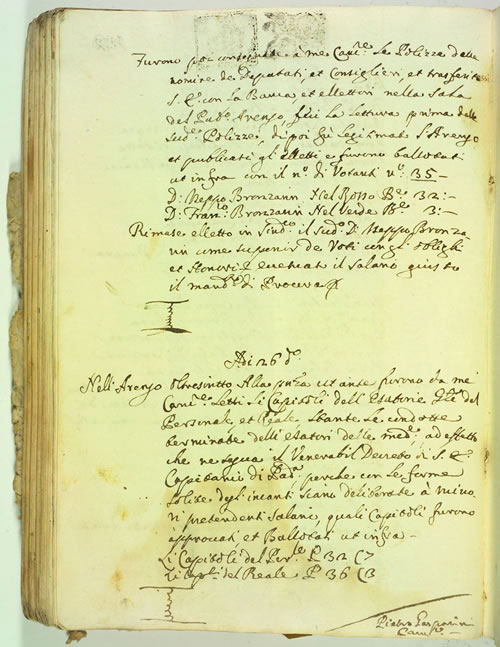 Furono poi consegnate à me Canc.re le Polizze delle
nomine de Deputati, et Consiglieri, et trasferite
S. E. con la Banca, et ellettori nella Sala
del Pub.co Arengo, fù la lettura prima delle
Sud.e Polizze, di poi fù legitimato l'Arengo
et publicati gli elletti e furono ballottati
ut infra con il n.o di Votanti n.o 35 –
D: Beppo Bronzann Nel Rosso B.e 32: –
D: Fran.o Bronzann Nel Verde B.e 3: –
Rimase elletto in Sind.co il Sud.o D: Beppo Bronza
un come superior de Voti con gl'oblighi
et et il Salario giusto
il mand.o di Procura
Adi 26 d.o
Nell'Arengo oltrescritto Alla pnza ut ante furono da me
Canc.re letti li Capitoli dell'Esatorie del
Personale, et Reale, stante le condotte
terminate delli esatori delle med.e ad effetto
che ne segua il Venerabil Decreto di S. E.
Capitanio di Pad.a perche con le forme
solite degl'incanti siano deliberate à minor
n pretendenti Salario, quali Capitoli furono
approvati et Ballotati ut infra –
Li Capitoli del Per.le P 32 C 7
Li Cap.li del Reale P 36 C 3
Pietro Gasparin
Canc.re